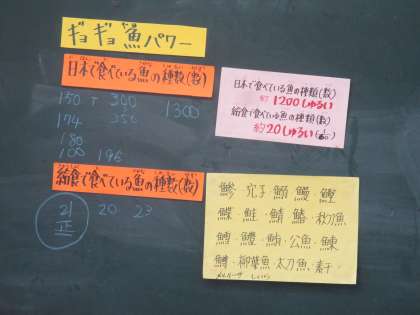 ギョギョ魚パワー
日本で食べている魚の種類(数)
150 300 1300
174 250
180
100 196
給食で食べている魚の種類(数)
21 20 23
正
日本で食べている魚の種類(数)
約1200しゅるい
給食で食べている魚の種類(数)
約20しゅるい
鯵・穴子・鰯・鰻・鰹
鰈・鮭・鯖・鰆・秋刀魚
鱈・鱧・鮪・公魚・鰊
鱒・柳葉魚・太刀魚・素干